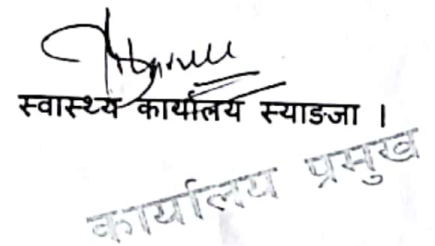 स्वास्थ्य कार्यालय स्याङजा ।
कार्यालय प्रमुख